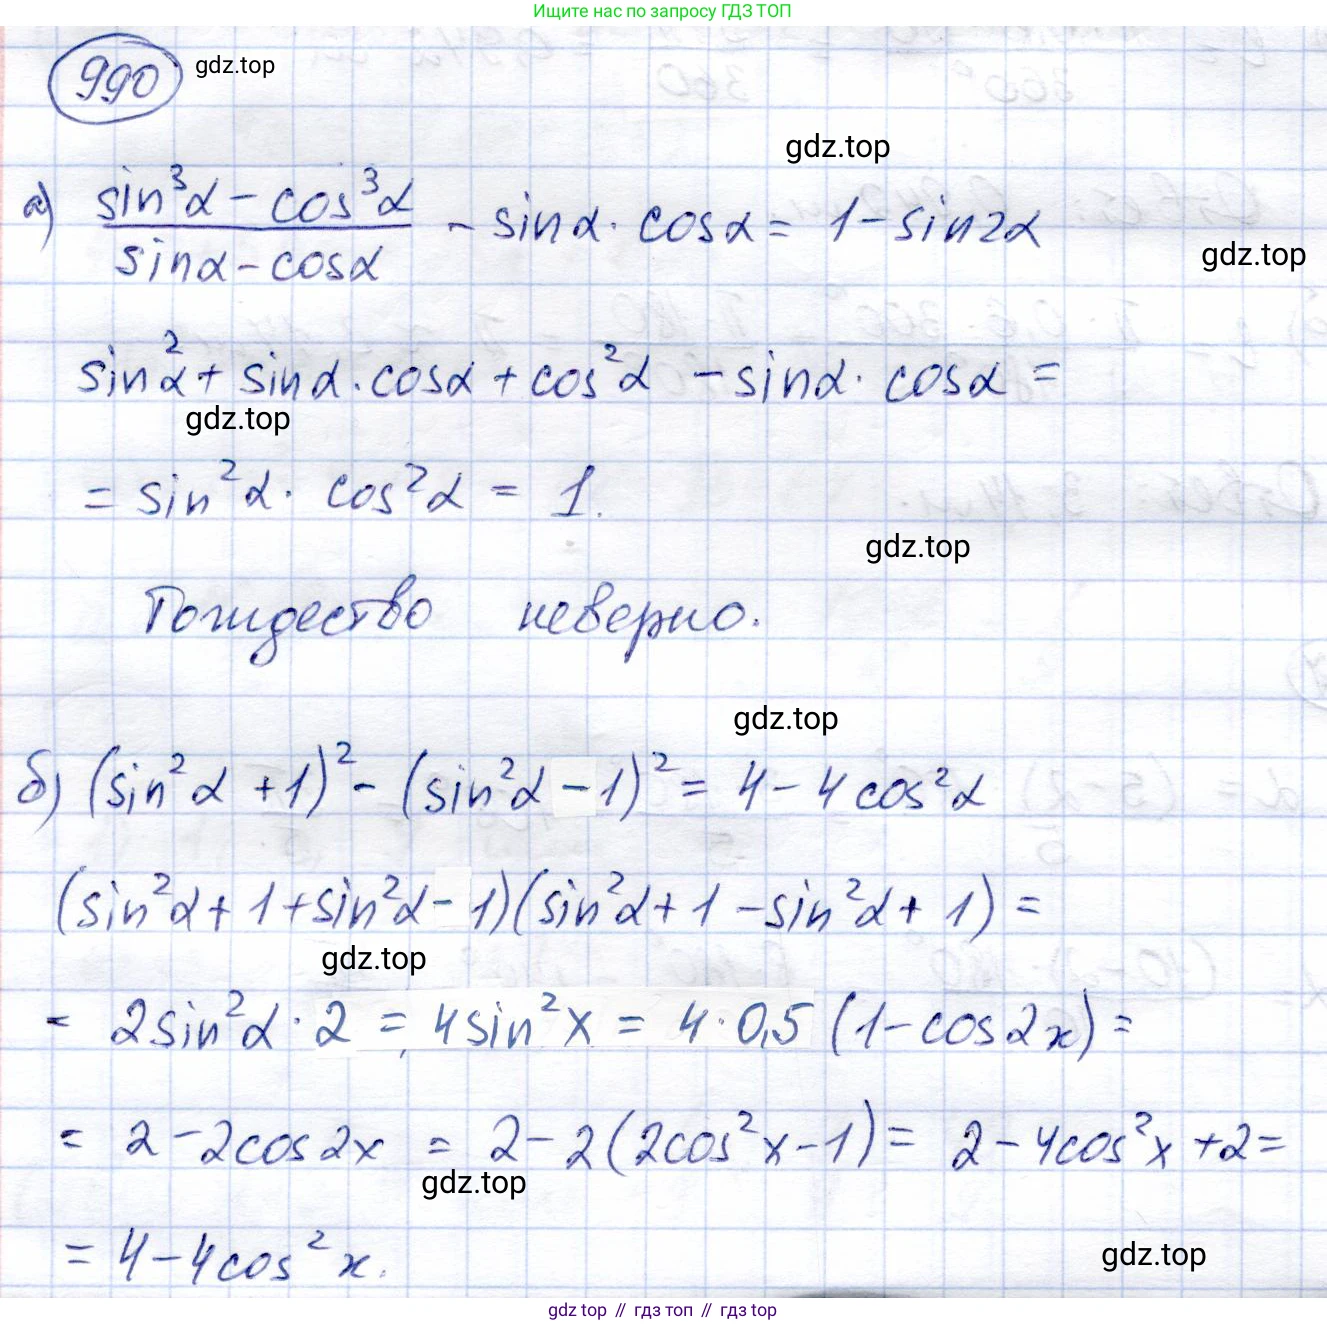 Ищите нас по запросу ГДЗ ТОП
990 gdz.top
gdz.top
а) (sin³α − cos³α)/(sinα − cosα) − sinα · cosα = 1 − sin2α
gdz.top
sin²α + sinα · cosα + cos²α − sinα · cosα =
gdz.top
= sin²α · cos²α = 1.
gdz.top
Тождество неверно.
gdz.top
б) (sin²α + 1)² − (sin²α − 1)² = 4 − 4cos²α
(sin²α + 1 + sin²α − 1)(sin²α + 1 − sin²α + 1) =
gdz.top
= 2sin²α · 2 = 4sin²x = 4 · 0,5 (1 − cos2x) =
= 2 − 2cos2x = 2 − 2(2cos²x − 1) = 2 − 4cos²x + 2 =
gdz.top
= 4 − 4cos²x.
gdz.top
gdz top // гдз топ // гдз top